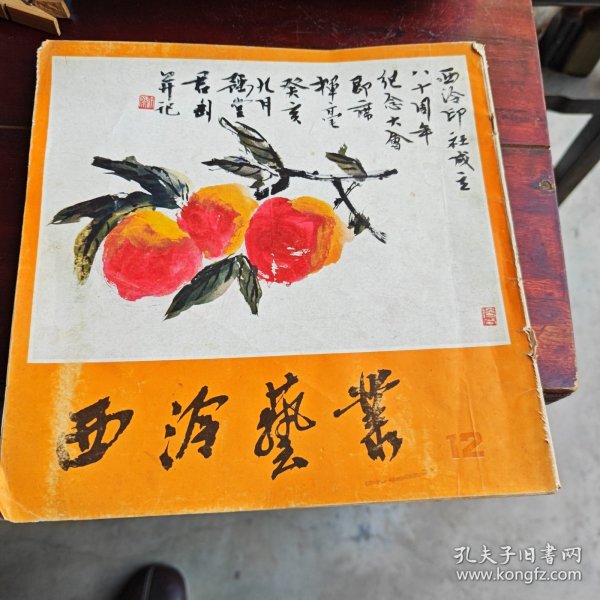 西泠印社成立
八十周年
纪念大會
即席
揮毫
癸亥
九月
君匋
并记
西泠藝叢
12
孔夫子旧书网
www.kongfz.com